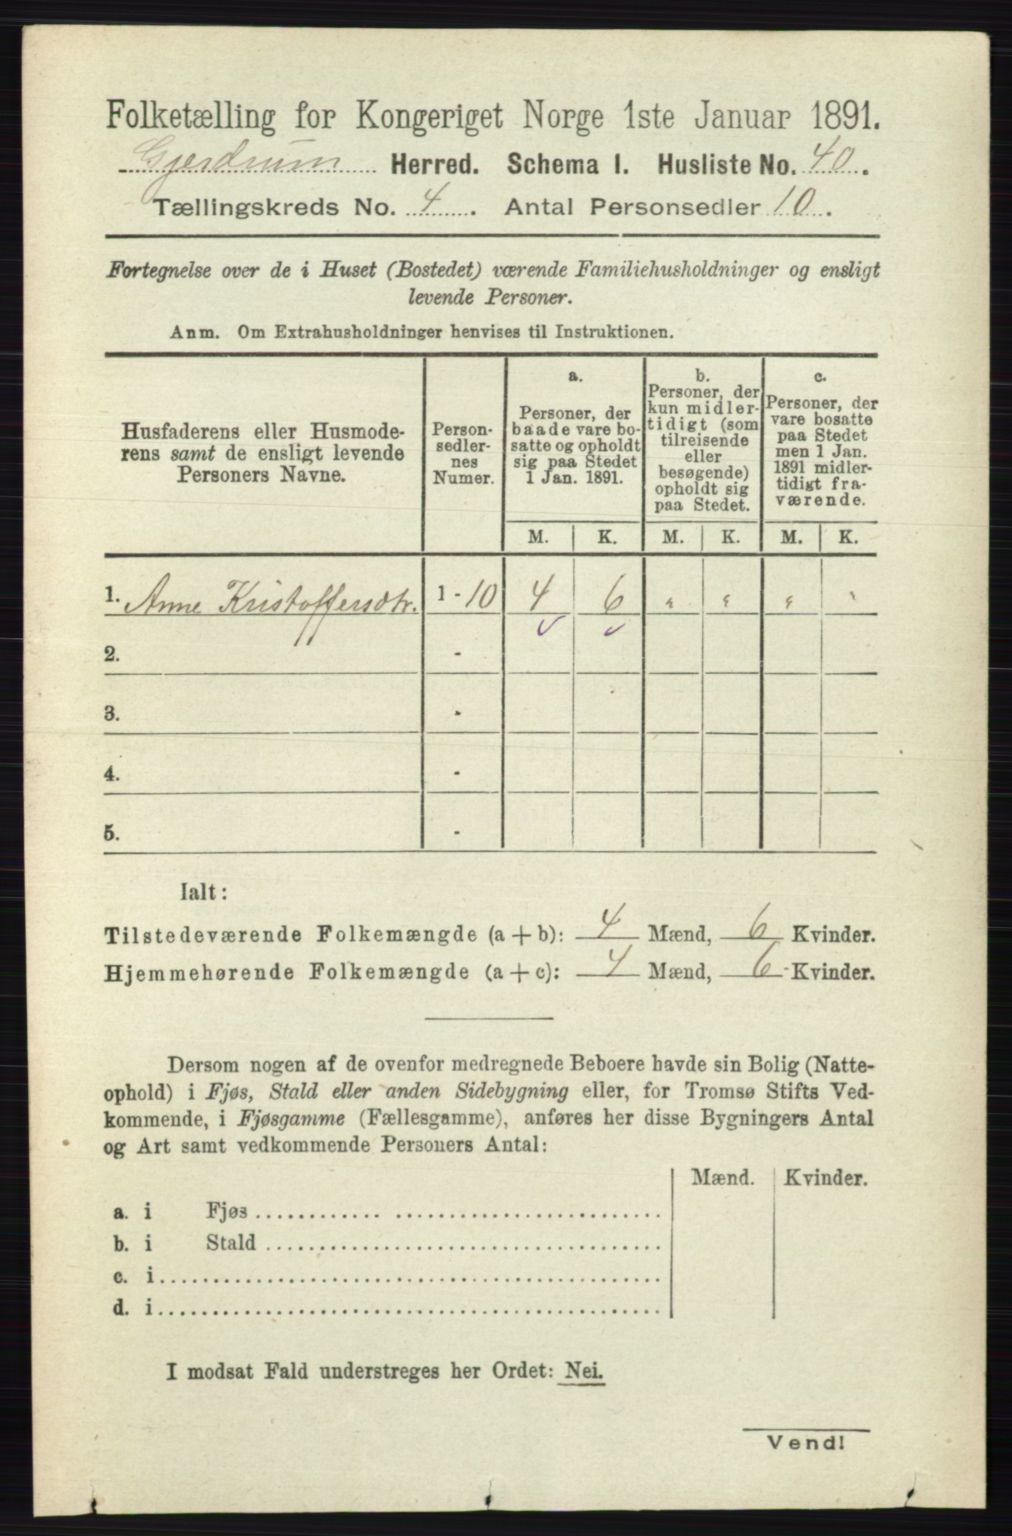 Folketælling for Kongeriget Norge 1ste Januar 1891.
Gjerdrum Herred. Schema I. Husliste No. 40.
Tællingskreds No. 4. Antal Personsedler 10.
Fortegnelse over de i Huset (Bostedet) værende Familiehusholdninger og ensligt
levende Personer.
Anm. Om Extrahusholdninger henvises til Instruktionen.
Husfaderens eller Husmode-
rens samt de ensligt levende
Personers Navne.
Person-
sedler-
nes
Numer.
a.
Personer, der
baade vare bo-
satte og opholdt
sig paa Stedet
1 Jan. 1891.
b.
Personer, der
kun midler-
tidigt (som
tilreisende
eller
besøgende)
opholdt sig
paa Stedet.
c.
Personer, der
vare bosatte
paa Stedet
men 1 Jan.
1891 midler-
tidigt fra-
værende.
M. K. M. K. M. K.
1. Anne Kristoffersdtr. 1 - 10 4 6 " " " "
2. -
3. -
4. -
5. -
Ialt:
Tilstedeværende Folkemængde (a + b): 4 Mænd, 6 Kvinder.
Hjemmehørende Folkemængde (a + c): 4 Mænd, 6 Kvinder.
Dersom nogen af de ovenfor medregnede Beboere havde sin Bolig (Natte-
ophold) i Fjøs, Stald eller anden Sidebygning eller, for Tromsø Stifts Ved-
kommende, i Fjøsgamme (Fællesgamme), anføres her disse Bygningers Antal
og Art samt vedkommende Personers Antal:
Mænd. Kvinder.
a. i Fjøs
b. i Stald
c. i
d. i
I modsat Fald understreges her Ordet: Nei.
Vend!